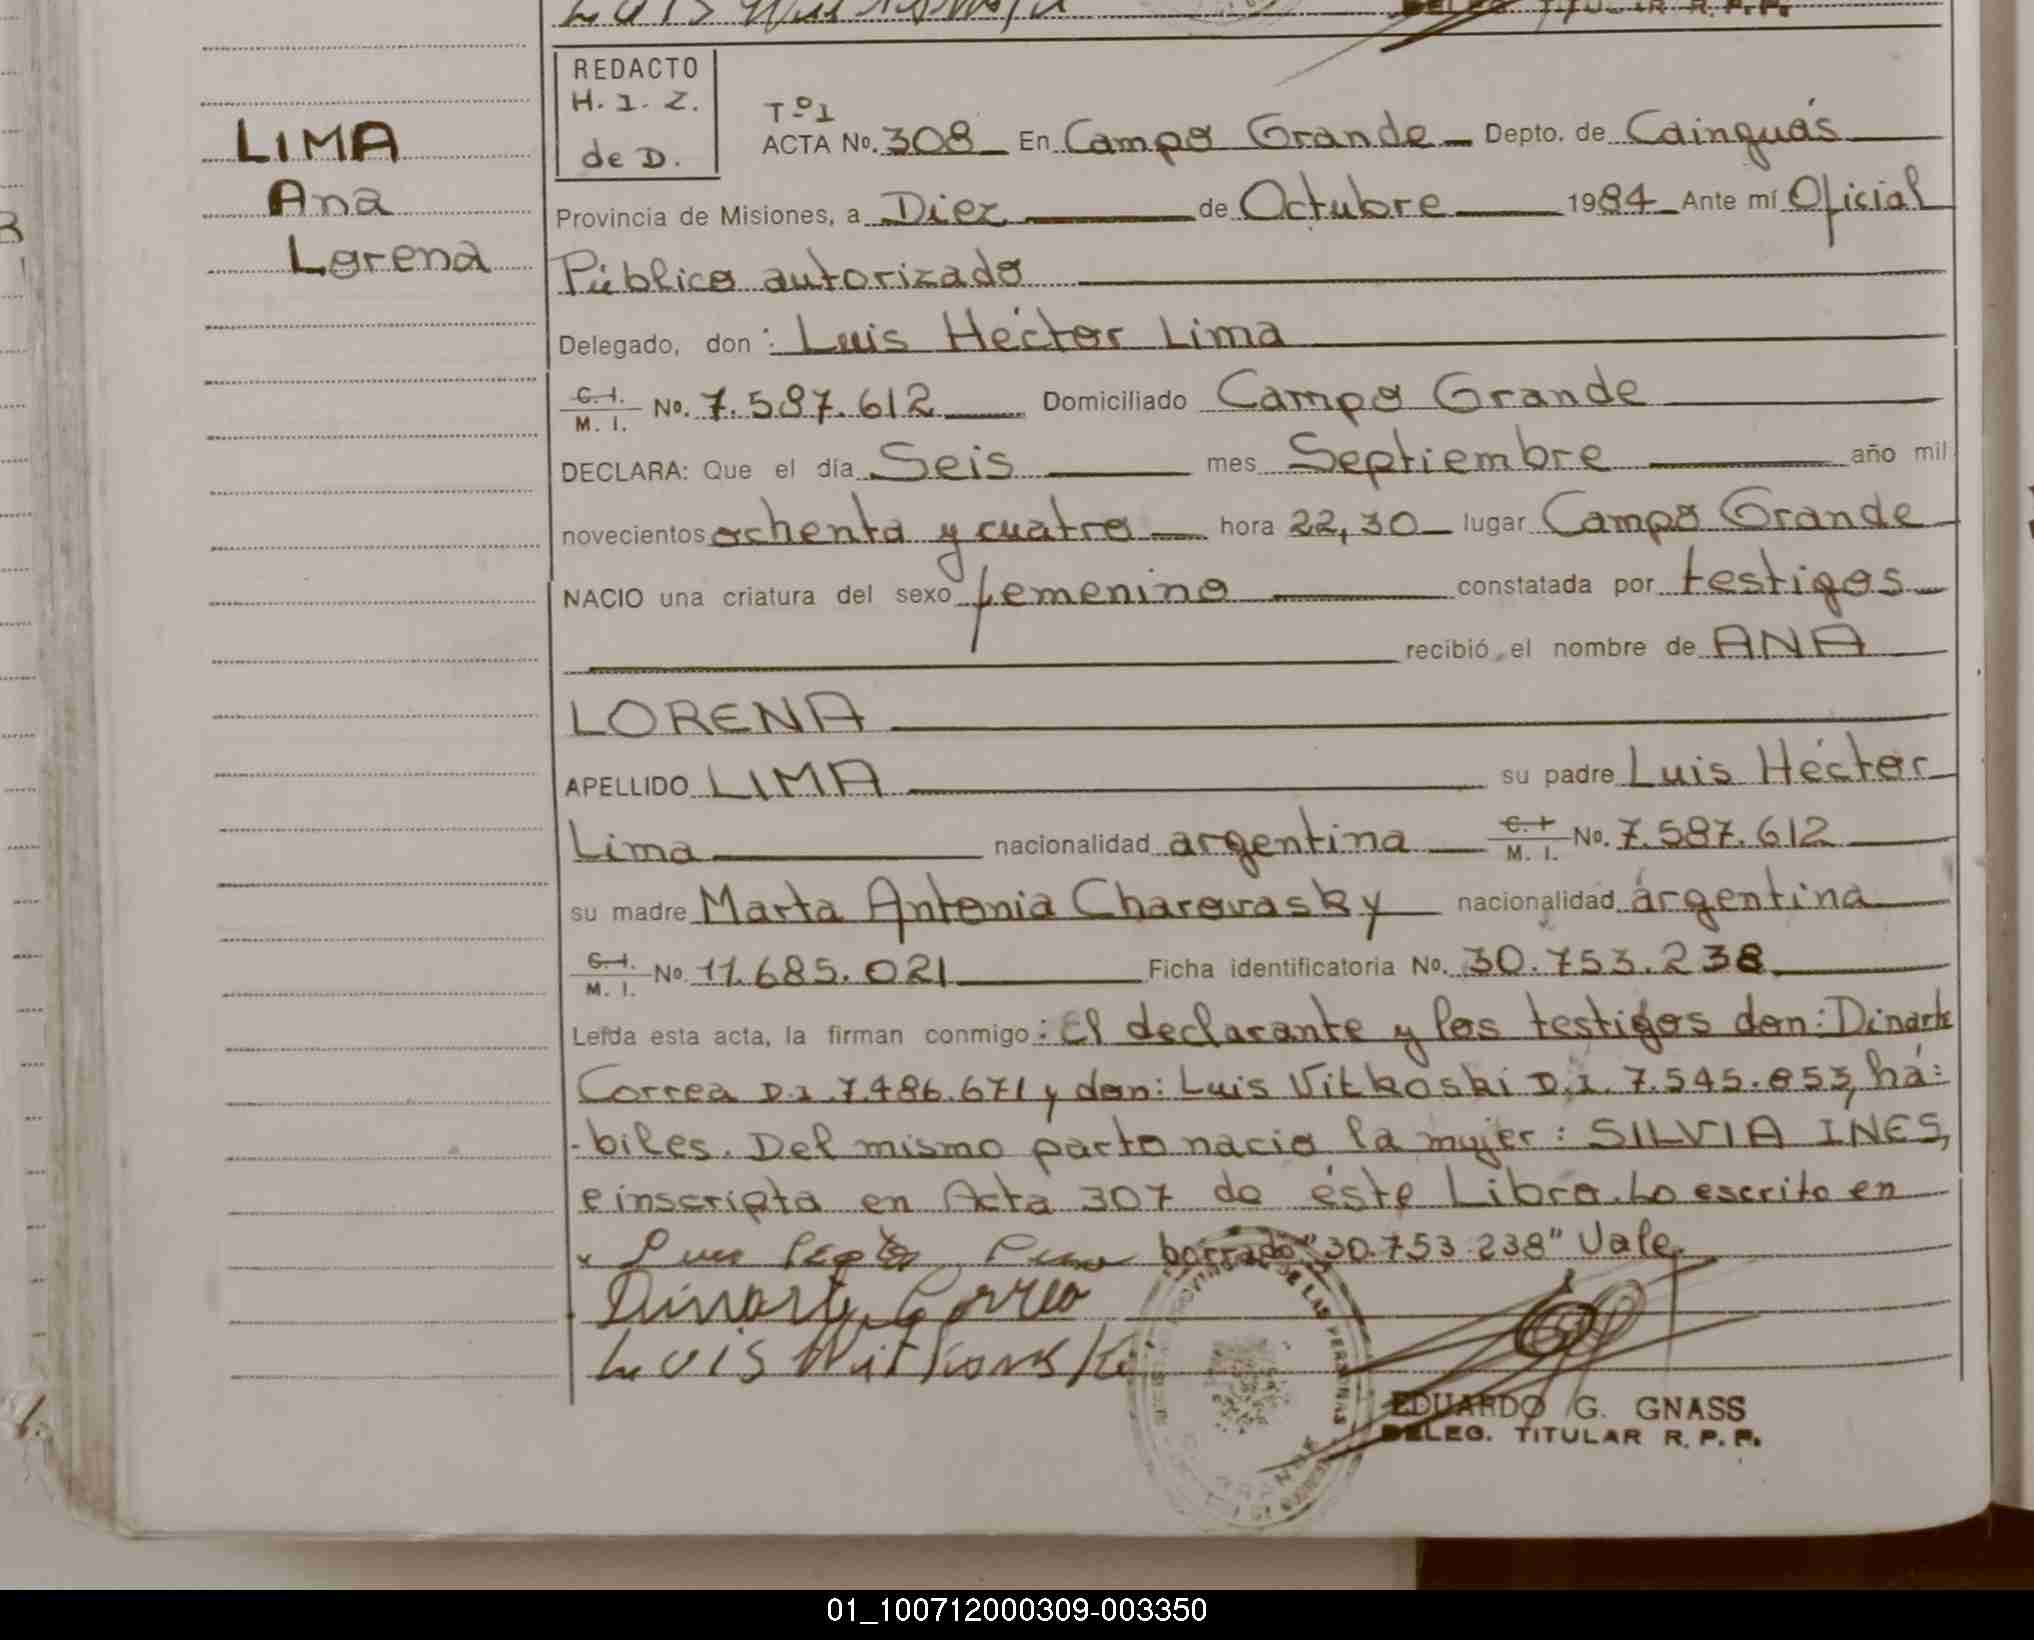 DELEG. TITULAR R.P.P.
REDACTO
H. I. Z.
de D.
LIMA
Ana
Lorena
Tº1
ACTA No. 308 En Campo Grande Depto. de Cainguás
Provincia de Misiones, a Diez de Octubre 1984 Ante mí Oficial
Público autorizado
Delegado, don: Luis Héctor Lima
C.I. M. I. No. 7.587.612 Domiciliado Campo Grande
DECLARA: Que el día Seis mes Septiembre año mil
novecientos ochenta y cuatro hora 22,30 lugar Campo Grande
NACIO una criatura del sexo femenino constatada por testigos
recibió el nombre de ANA
LORENA
APELLIDO LIMA su padre Luis Héctor
Lima nacionalidad argentina C.I. M. I. No. 7.587.612
su madre Marta Antonia Charovasky nacionalidad argentina
C.I. M. I. No. 11.685.021 Ficha identificatoria No. 30.753.238
Leída esta acta, la firman conmigo: el declarante y los testigos don: Dinarte
Correa D.I. 7.486.671 y don: Luis Vitkoski D.I. 7.545.853, há-
-biles. Del mismo parto nacio la mujer: SILVIA INES,
e inscripta en Acta 307 de éste Libro. Lo escrito en
borrado "30.753.238" Vale.
Dinarte Correa
Luis
EDUARDO G. GNASS
DELEG. TITULAR R. P. P.
01_100712000309-003350